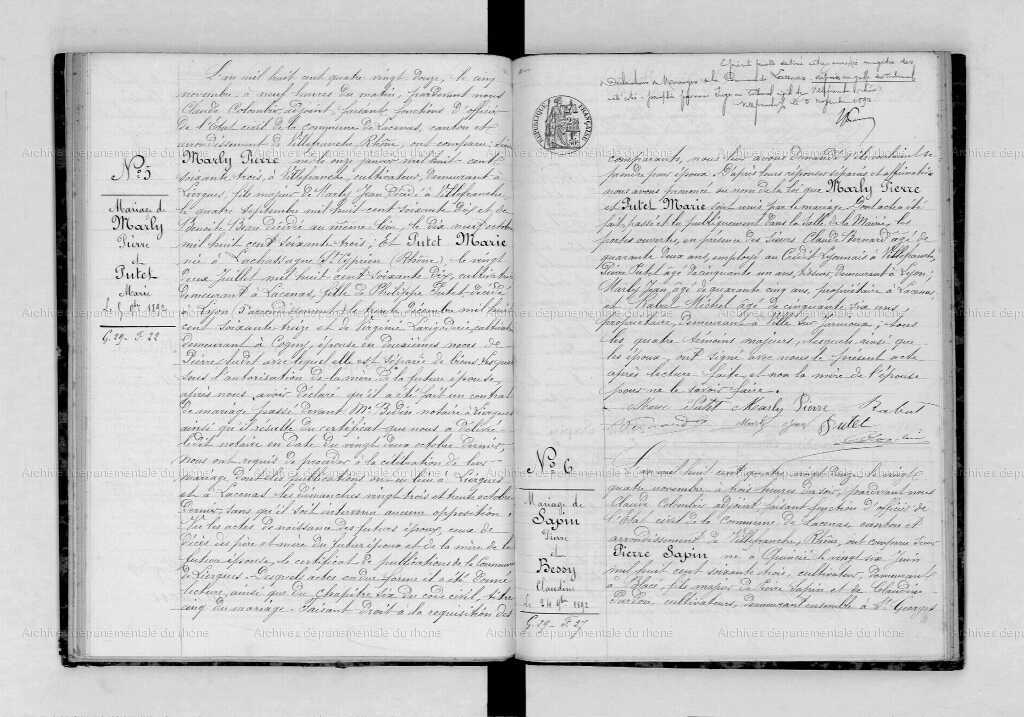 L'an mil huit cent quatre vingt douze, le cinq
novembre à neuf heures du matin, pardevant nous
Claude Colombier adjoint, faisant fonctions d'officier
de l'Etat civil de la commune de Lacenas, canton et
arrondissement de Villefranche, Rhône, ont comparu:
Marly Pierre né le onze janvier mil huit cent
soixante trois, à Villefranche, cultivateur, demeurant à
Liergues, fils majeur de Marly Jean décédé à Villefranche
le quatre septembre mil huit cent soixante dix et de
Benoite décédée au même lieu, le dix neuf octobre
mil huit cent soixante trois; Et Putet Marie
née à Lachassagne St Cyprien (Rhône), le vingt
deux Juillet mil huit cent soixante dix, cultivatrice
demeurant à Lacenas, fille de Philippe Putet décédé
à Lyon arrondissement le trente décembre mil huit
cent soixante treize et de Virginie cultivatrice
demeurant à Cogny, épouse en deuxièmes noces de
avec lequel elle est séparée de biens. Lesquels
sous l'autorisation de la mère de la future épouse,
après nous avoir déclaré qu'il a été fait un contrat
de mariage passé devant Me notaire à Liergues
ainsi qu'il résulte du certificat que nous a délivré
ledit notaire en date du vingt deux octobre dernier,
nous ont requis de procéder à la célébration de leur
mariage dont les publications ont eu lieu à Liergues
et à Lacenas les dimanches vingt trois et trente octobre
dernier, sans qu'il soit intervenu aucune opposition.
Vu les actes de naissance des futurs époux, ceux de
décès des père et mère du futur époux et de la mère de la
future épouse, le certificat de publications de la Commune
de Liergues. Lesquels actes en due forme et a été donné
lecture, ainsi que du chapitre six du code civil, titre
cinq du mariage. Faisant droit à la requisition des
No 5
Mariage de
Marly
Pierre
et
Putet
Marie
le 5 9bre 1892
G. 29. F. 22
RÉPUBLIQUE FRANÇAISE
comparants, nous leur avons demandé s'ils voulaient se
prendre pour époux. D'après leurs réponses séparées et affirmatives
nous avons prononcé au nom de la loi que Marly Pierre
et Putet Marie sont unis par le mariage. Dont acte a été
fait, passé et lu publiquement dans la salle de la Mairie, les
portes ouvertes, en présence des sieurs Claude Bernard âgé de
quarante deux ans, employé au Crédit Lyonnais à Villefranche,
Pierre Putet âgé de cinquante un ans, tisseur, demeurant à Lyon;
Marly Jean âgé de quarante cinq ans, propriétaire à Lacenas
et Rabut Michel âgé de cinquante six ans
propriétaire, demeurant à Ville sur Jarnioux; tous
les quatre témoins majeurs, lesquels ainsi que
les époux, ont signé avec nous le présent acte
après lecture faite, et non la mère de l'épouse
pour ne le savoir faire.
Marie Putet Marly Pierre Rabut
Bernard Marly Jean Putet
No 6
Mariage de
Sapin
Pierre
et
Bessy
Claudine
le 24 9bre 1892
G. 29. F. 27
L'an mil huit cent quatre vingt douze, le vingt
quatre novembre à trois heures du soir, pardevant nous
Claude Colombier adjoint faisant fonction d'officier de
l'Etat civil de la Commune de Lacenas canton et
arrondissement de Villefranche, Rhône, ont comparu
Pierre Sapin né à Quincié le vingt six Juin
mil huit cent soixante trois, cultivateur, demeurant
à Blacé, fils majeur de Pierre Sapin et de Claudine
cultivateurs, demeurant ensemble à St Georges
Archives départementale du rhône